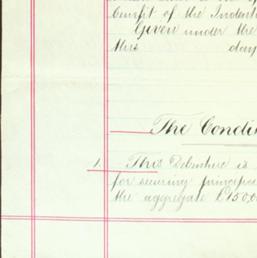 benefit of the Indent
Given under the
this day
The Condi
1. This Debenture is
for securing principa
the aggregate £150,0